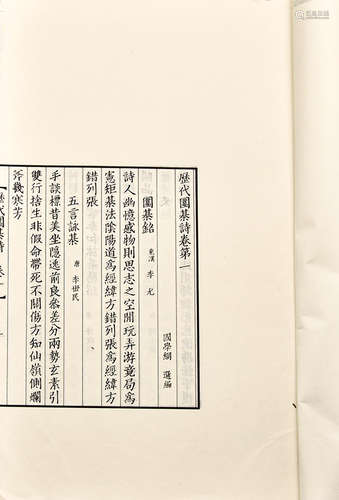 歷代圍棊詩卷第一
國學綱 選編
圍棊銘 東漢 李尤
詩人幽憶感物則思志之空閒玩弄游竟局為
憲矩棊法陰陽道為經緯方錯列張為經緯方
錯列張
五言詠棊 唐 李世民
手談標昔美坐隱逸前良參差分兩勢玄素引
雙行捨生非假命帶死不關傷方知仙嶺側爛
斧幾寒芳
歷代圍棊詩 卷一 一